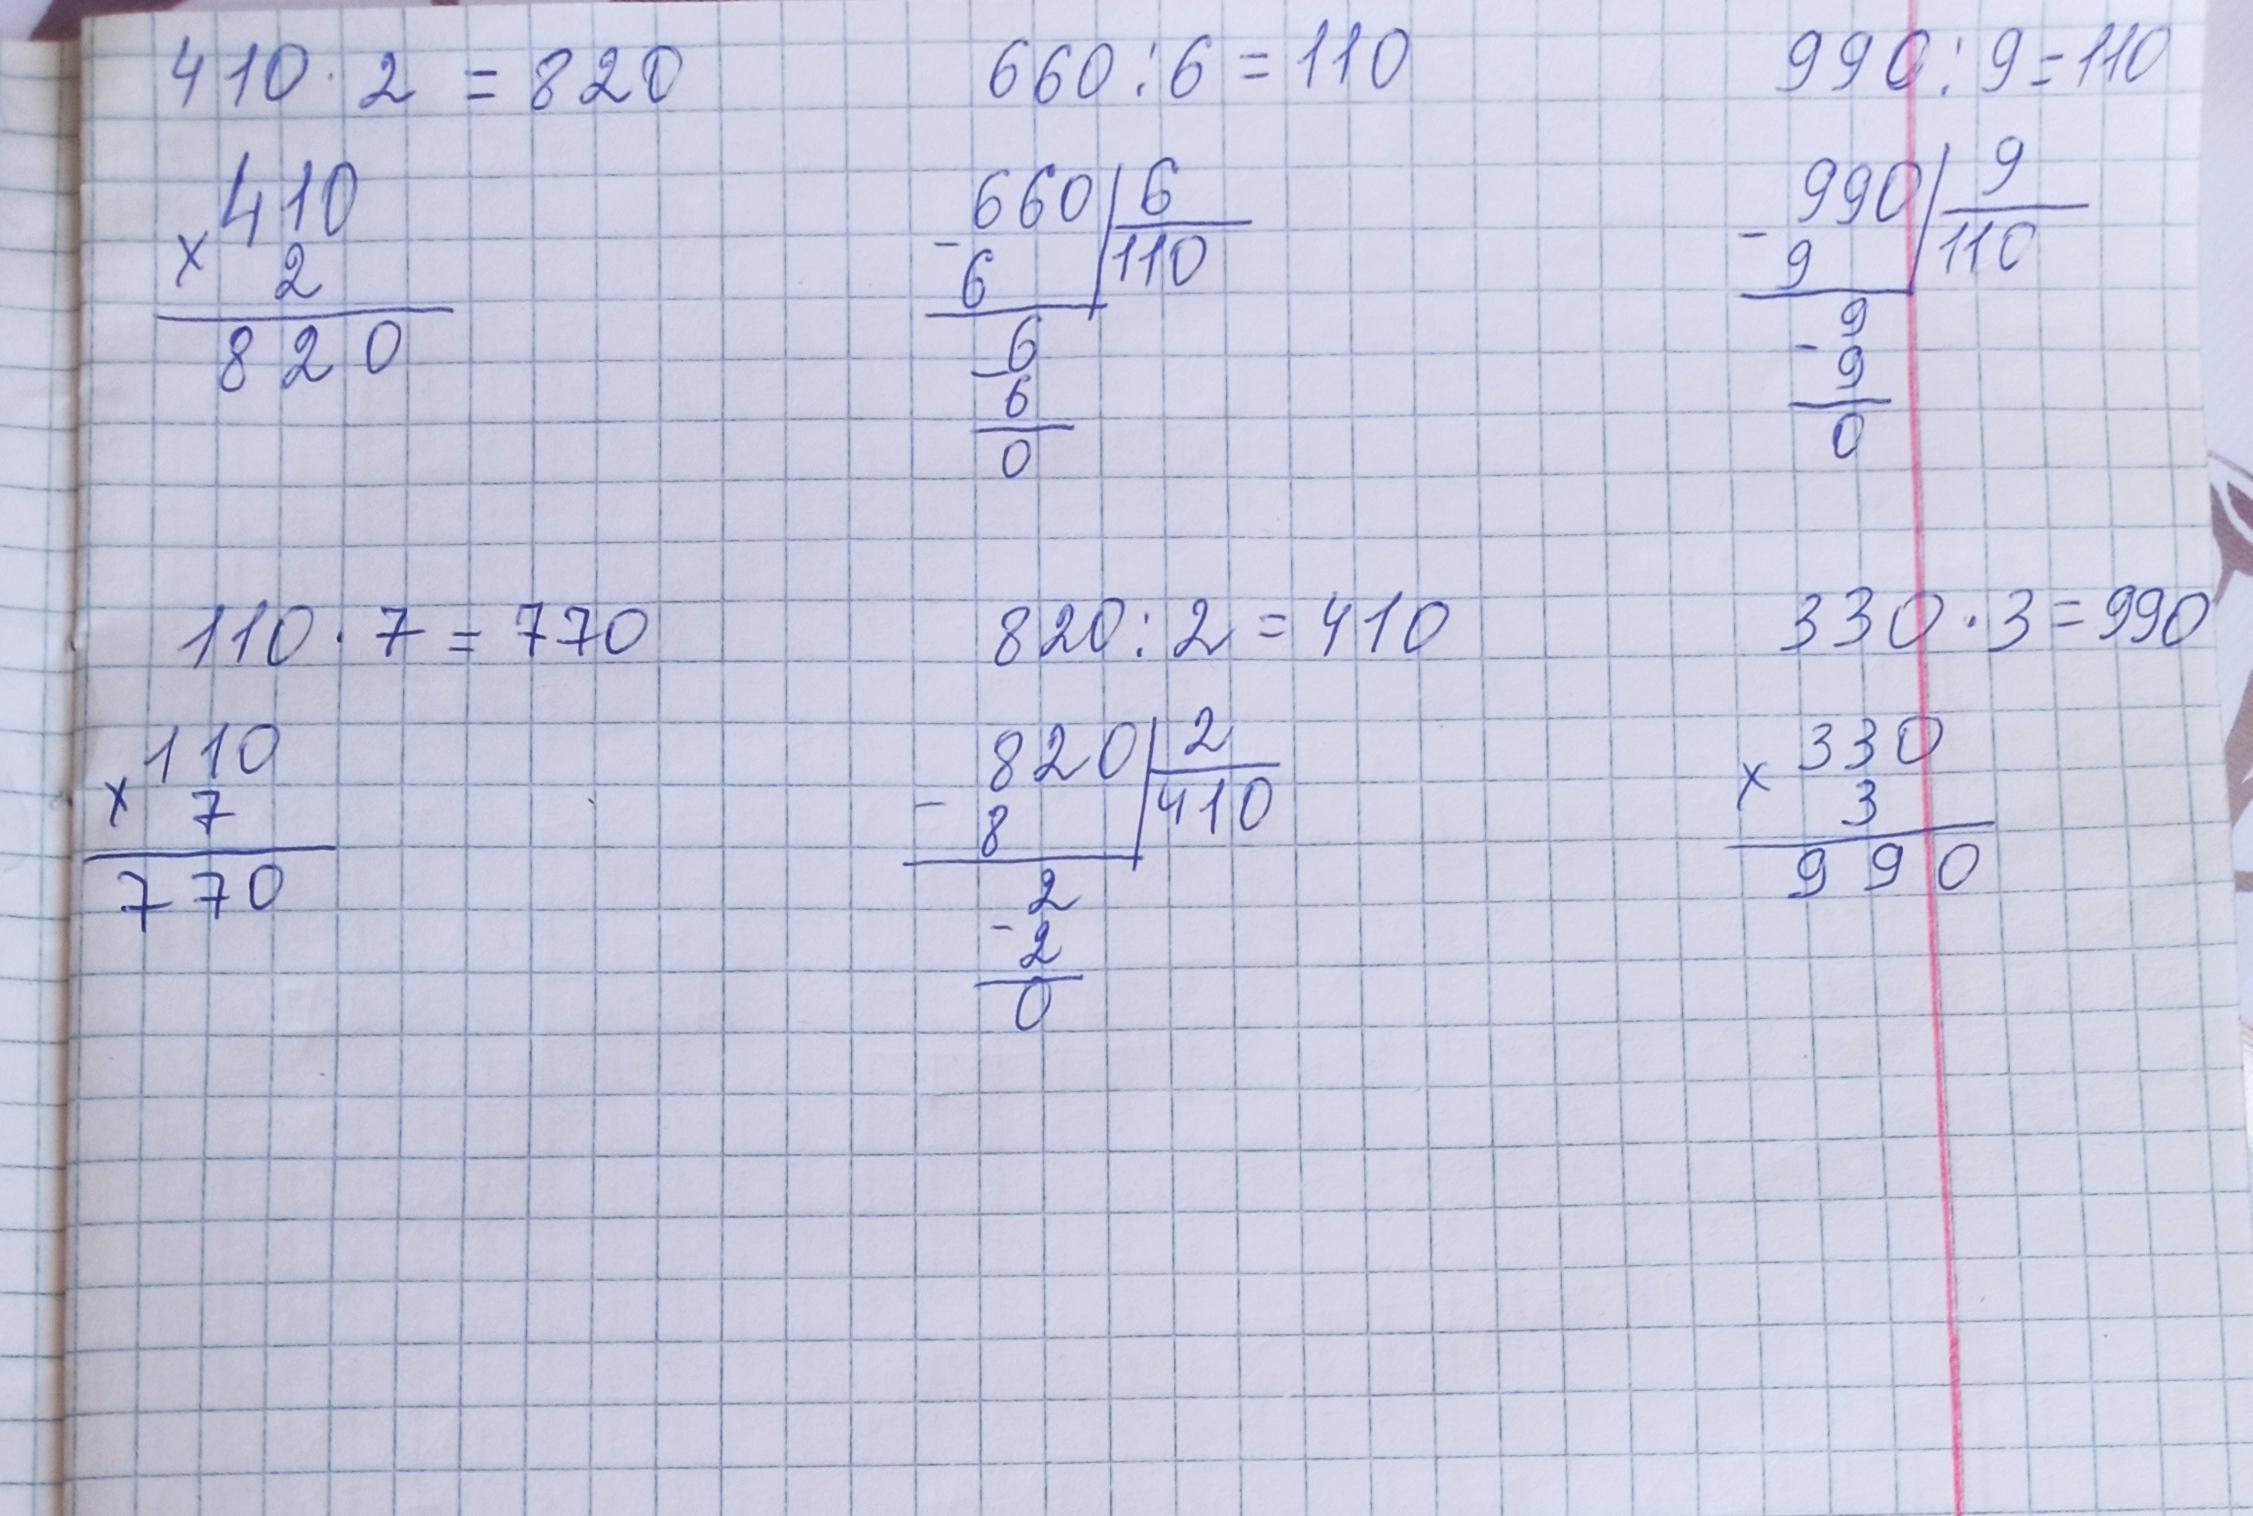 410 · 2 = 820
410
× 2
820
660 : 6 = 110
660 6
- 6 110
- 6
6
0
990 : 9 = 110
990 9
- 9 110
- 9
9
0
110 · 7 = 770
110
× 7
770
820 : 2 = 410
820 2
- 8 410
- 2
2
0
330 · 3 = 990
330
× 3
990